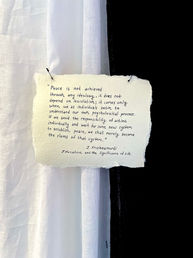 "Peace is not achieved
through any ideology, it does not
depend on legislation; it comes only
when we as individuals begin to
understand our own psychological process.
If we avoid the responsibility of acting
individually and wait for some new system
to establish peace, we shall merely become
the slaves of that system."
J. Krishnamurti
Education and the Significance of Life